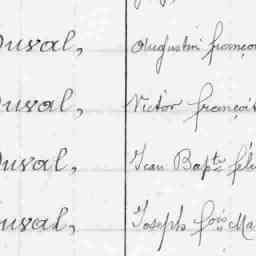 Duval, Augustin françoi
Duval, Victor françois
Duval, Jean Bapte féli
Duval, Joseph fois Ma